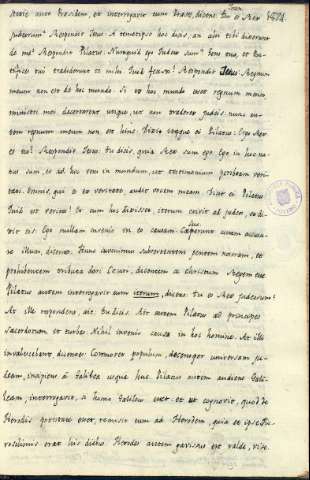 Stetit ante Praesidem, et interrogavit eum Praeses, dicens: Tu es Rex
Joan.
Judaeorum? Respondit Jesus: A temetipso hoc dicis, an alii tibi dixerunt
de me? Respondit Pilatus: Numquid ego Judaeus sum? Gens tua, et Pon-
tifices tui tradiderunt te mihi: Quid fecisti? Respondit Jesus: Regnum
meum non est de hoc mundo. Si ex hoc mundo esset regnum meum
ministri mei decertarent utique, ut non traderer Judaeis: nunc au-
tem regnum meum non est hinc. Dixit itaque ei Pilatus: Ergo Rex
es tu? Respondit Jesus: Tu dicis, quia Rex sum ego. Ego in hoc na-
tus sum, et ad hoc veni in mundum, ut testimonium perhibeam veri-
tati. Omnis, qui est ex veritate audit vocem meam. Dicit ei Pilatus
Quid est veritas? Et cum hoc dixisset, iterum exivit ad Judaeos, et di-
xit eis: Ego nullam invenio in eo causam.
Luc.
Coeperunt autem accusa-
re illum, dicentes: Hunc invenimus subvertentem gentem nostram, et
prohibentem tributa dari Caesari, dicentem se christum Regem esse
Pilatus autem interrogavit eum iterum, dicens: Tu es Rex Judaeorum?
At ille respondens, ait: Tu dicis. Ait autem Pilatus ad principes
Sacerdotum, et turbas: Nihil invenio causae in hoc homine. At illi
invalescebant, dicentes: Commovet populum, docens per universam Ju-
daeam, incipiens a Galilaea usque huc. Pilatus autem audiens Gali-
laeam, interrogavit, si homo Galilaeus esset. Et ut cognovit, quod de
Herodis potestate esset, remisit eum ad Herodem, quia et ipse Je-
rosolimis erat his diebus. Herodes autem gavisus est valde, viso